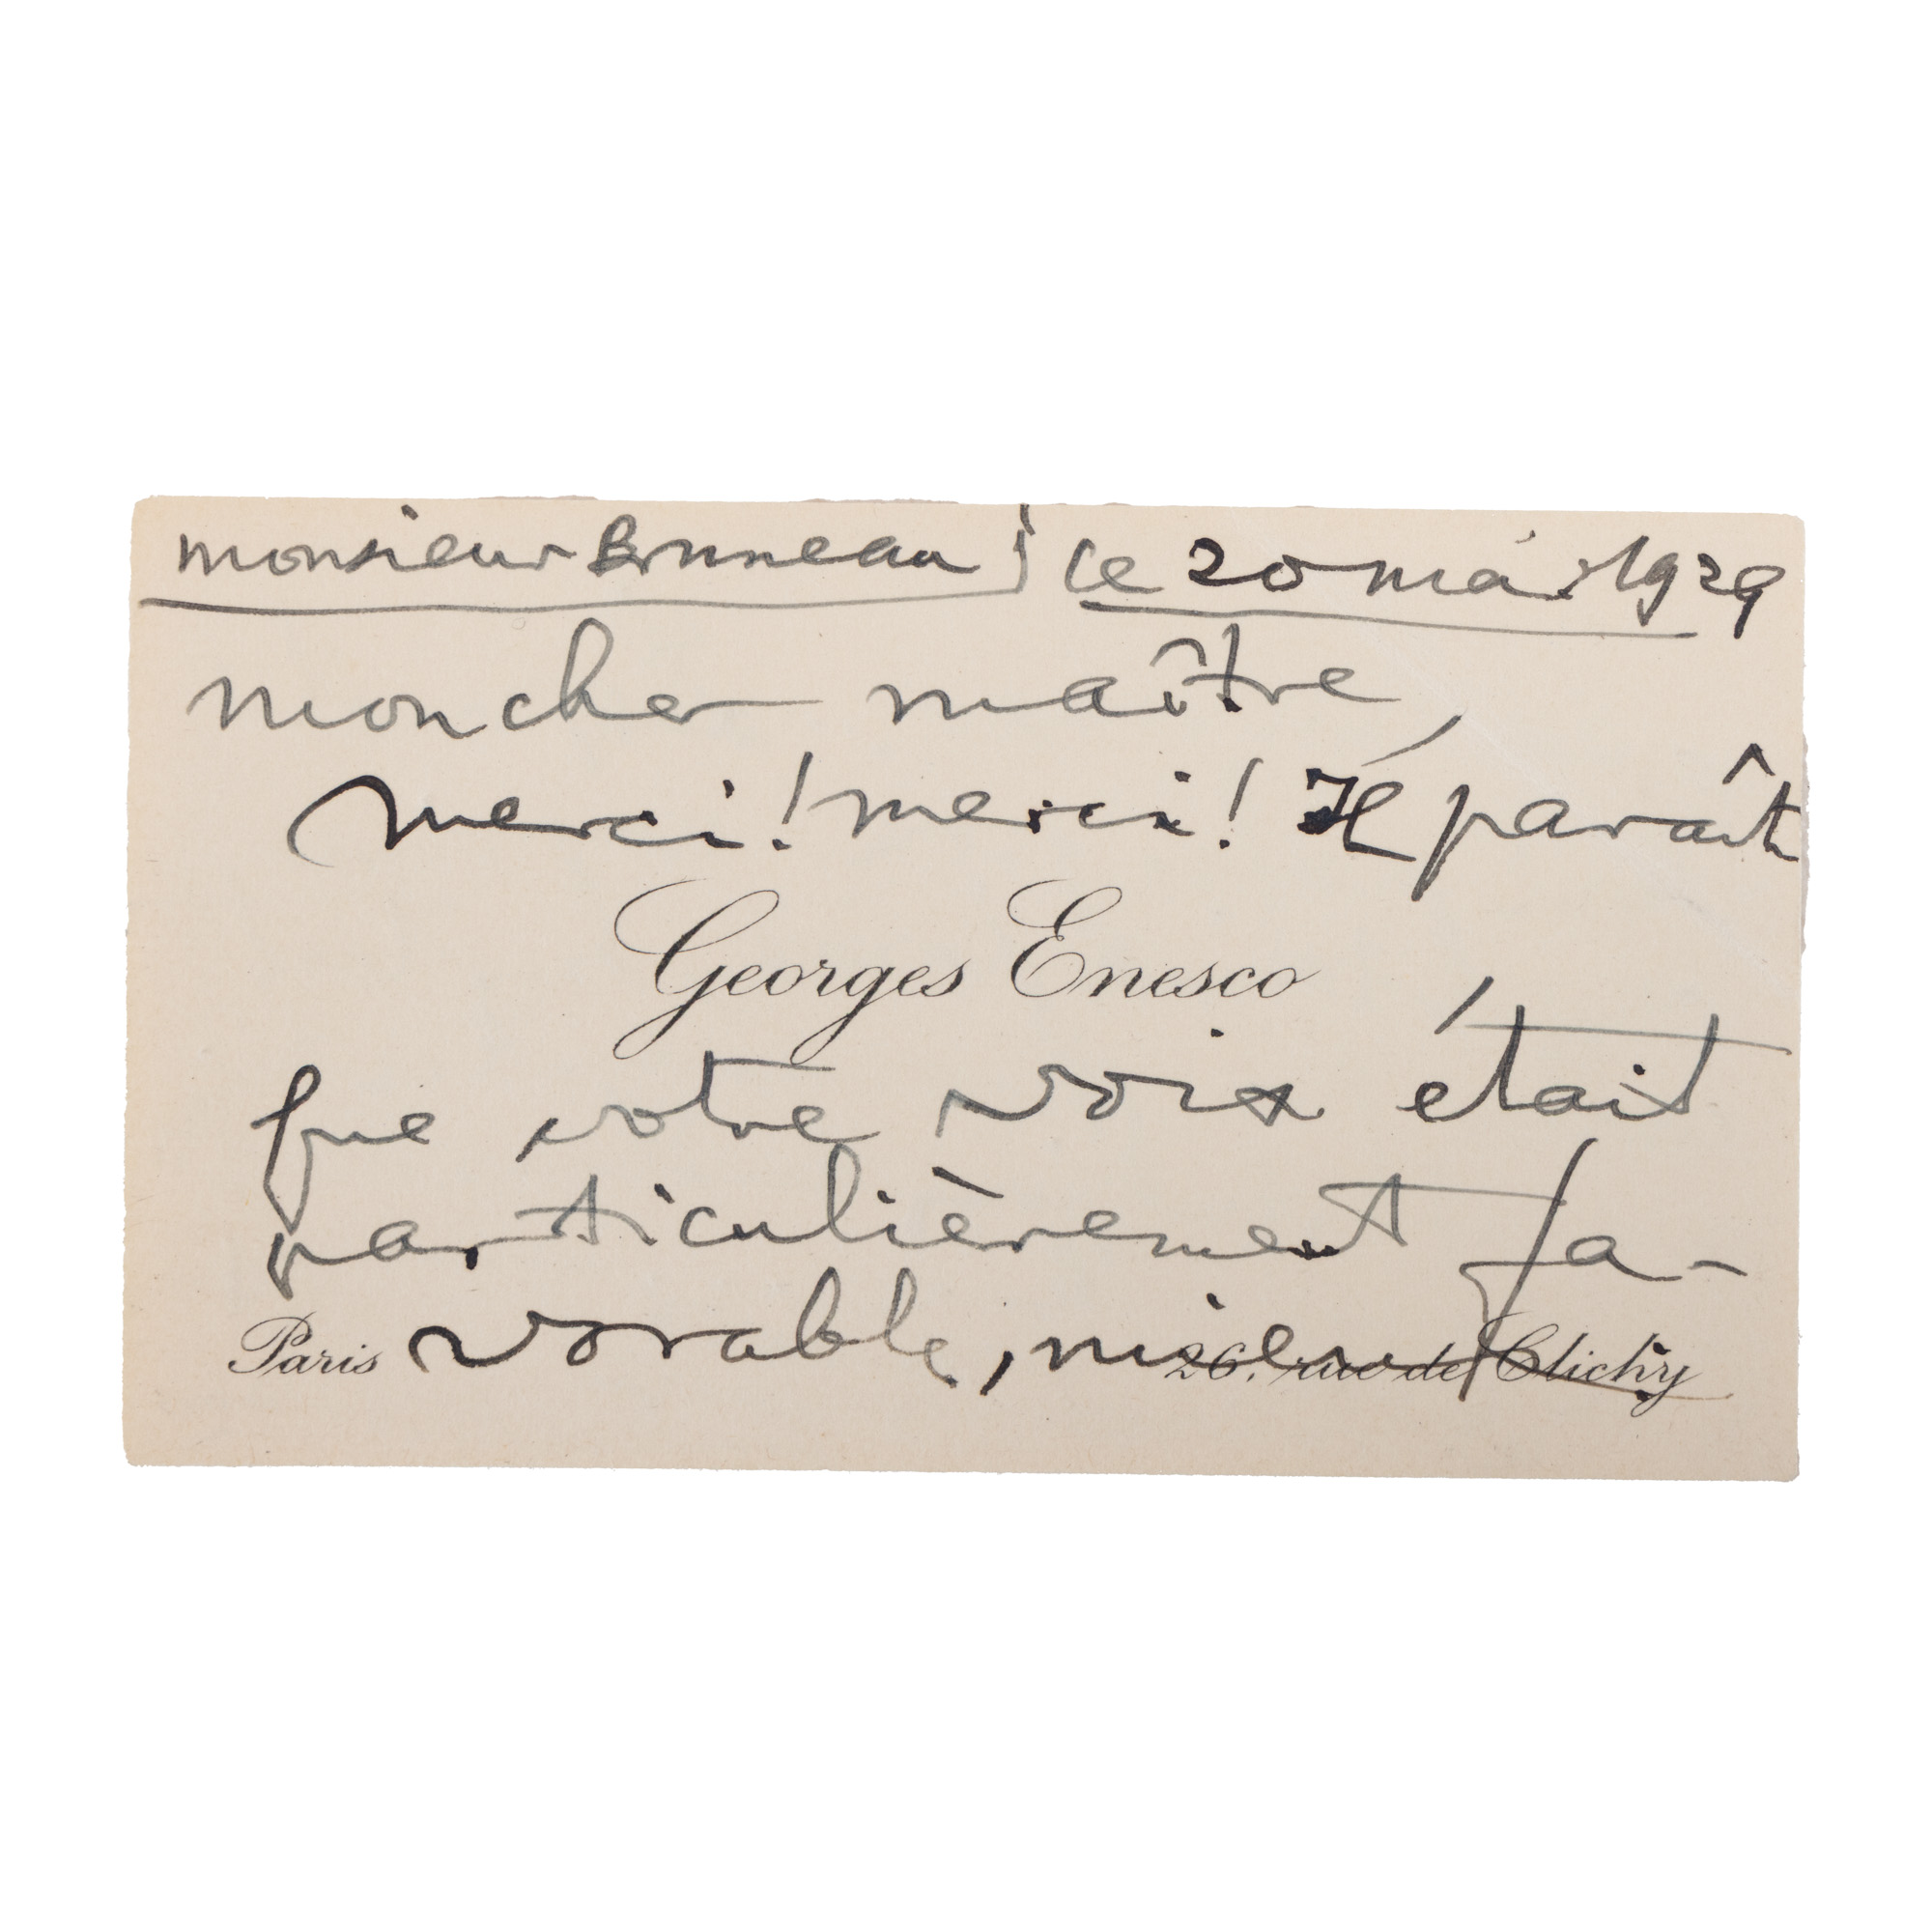 monsieur Bruneau
le 20 mai 1929
mon cher maître,
merci! merci! Il paraît
Georges Enesco
que votre voix était
particulièrement fa-
vorable,
Paris
26, rue de Clichy